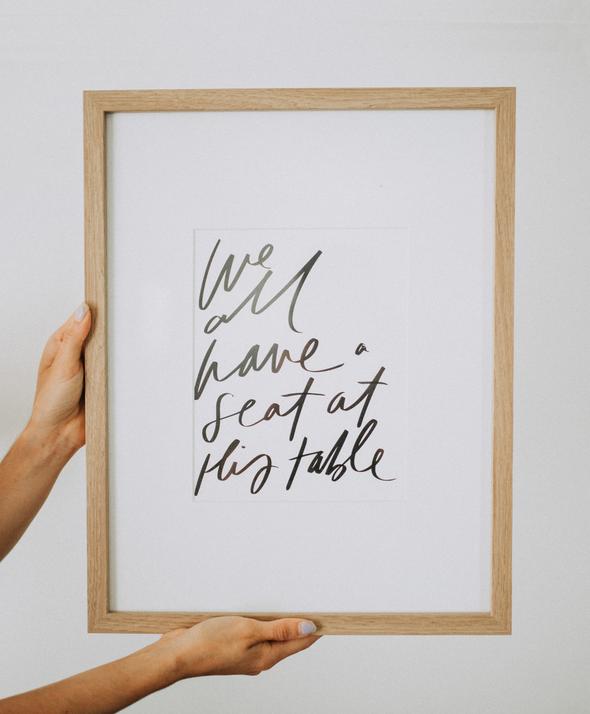 We
all
have a
seat at
His table